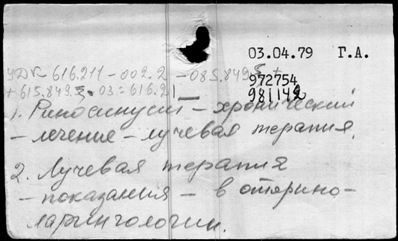 03.04.79 Г.А.
УДК 616.211-002.2-085.849.5+
+615.849.5.03:616.21
972754
981142
1. Риносинусит - хронический
- лечение - лучевая терапия.
2. Лучевая терапия
- показания - в оторино-
ларингологии.